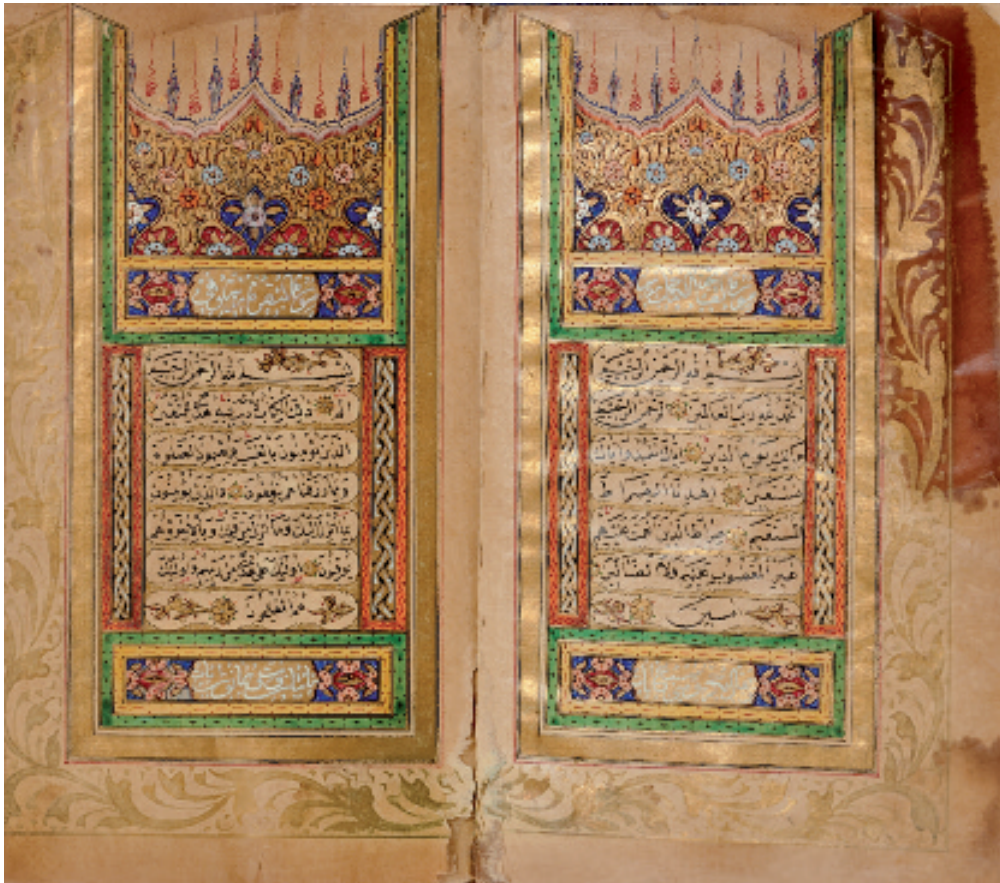 بسم الله الرحمن الرحيم
الحمد لله رب العالمين الرحمن الرحيم
مالك يوم الدين اياك نعبد واياك
نستعين اهدنا الصراط
المستقيم صراط الذين انعمت عليهم
غير المغضوب عليهم ولا الضالين
امين
بسم الله الرحمن الرحيم
الم ذلك الكتاب لا ريب فيه هدى للمتقين
الذين يؤمنون بالغيب ويقيمون الصلوة
ومما رزقناهم ينفقون والذين يؤمنون
بما انزل اليك وما انزل من قبلك وبالاخرة هم
يوقنون اولئك على هدى من ربهم واولئك
هم المفلحون